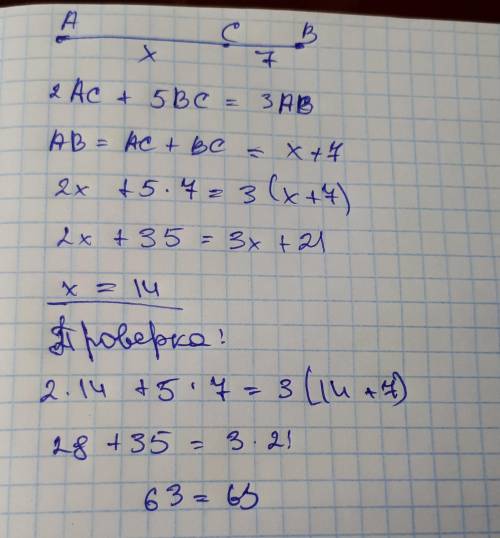 A C B
x 7
2AC + 5BC = 3AB
AB = AC + BC = x+7
2x + 5·7 = 3(x+7)
2x + 35 = 3x + 21
x = 14
Проверка:
2·14 + 5·7 = 3(14+7)
28 + 35 = 3·21
63 = 63